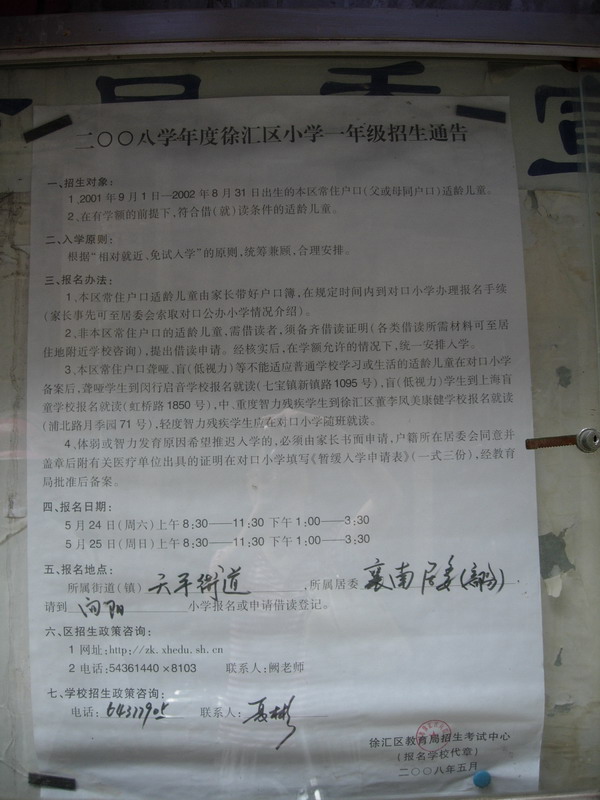 二〇〇八学年度徐汇区小学一年级招生通告
一、招生对象:
1.2001年9月1日—2002年8月31日出生的本区常住户口(父或母同户口)适龄儿童。
2、在有学额的前提下,符合借(就)读条件的适龄儿童。
二、入学原则:
根据“相对就近、免试入学”的原则,统筹兼顾,合理安排。
三、报名办法:
1、本区常住户口适龄儿童由家长带好户口簿,在规定时间内到对口小学办理报名手续
(家长事先可至居委会索取对口公办小学情况介绍)。
2、非本区常住户口的适龄儿童,需借读者,须备齐借读证明(各类借读所需材料可至居
住地附近学校咨询),提出借读申请。经核实后,在学额允许的情况下,统一安排入学。
3、本区常住户口聋哑、盲(低视力)等不能适应普通学校学习或生活的适龄儿童在对口小学
备案后,聋哑学生到闵行启音学校报名就读(七宝镇新镇路1095号),盲(低视力)学生到上海盲
童学校报名就读(虹桥路1850号),中、重度智力残疾学生到徐汇区董李凤美康健学校报名就读
(浦北路月季园71号),轻度智力残疾学生应在对口小学随班就读。
4、体弱或智力发育原因希望推迟入学的,必须由家长书面申请,户籍所在居委会同意并
盖章后附有关医疗单位出具的证明在对口小学填写《暂缓入学申请表》(一式三份),经教育
局批准后备案。
四、报名日期:
5月24日(周六)上午8:30——11:30 下午1:00——3:30
5月25日(周日)上午8:30——11:30 下午1:00——3:30
五、报名地点:
所属街道(镇) 天平街道 ,所属居委 襄南居委(部分) ,
请到 向阳 小学报名或申请借读登记。
六、区招生政策咨询:
1 网址:http://zk.xhedu.sh.cn
2 电话:54361440×8103 联系人:阙老师
七、学校招生政策咨询:
电话: 联系人:
徐汇区教育局招生考试中心
(报名学校代章)
二〇〇八年五月